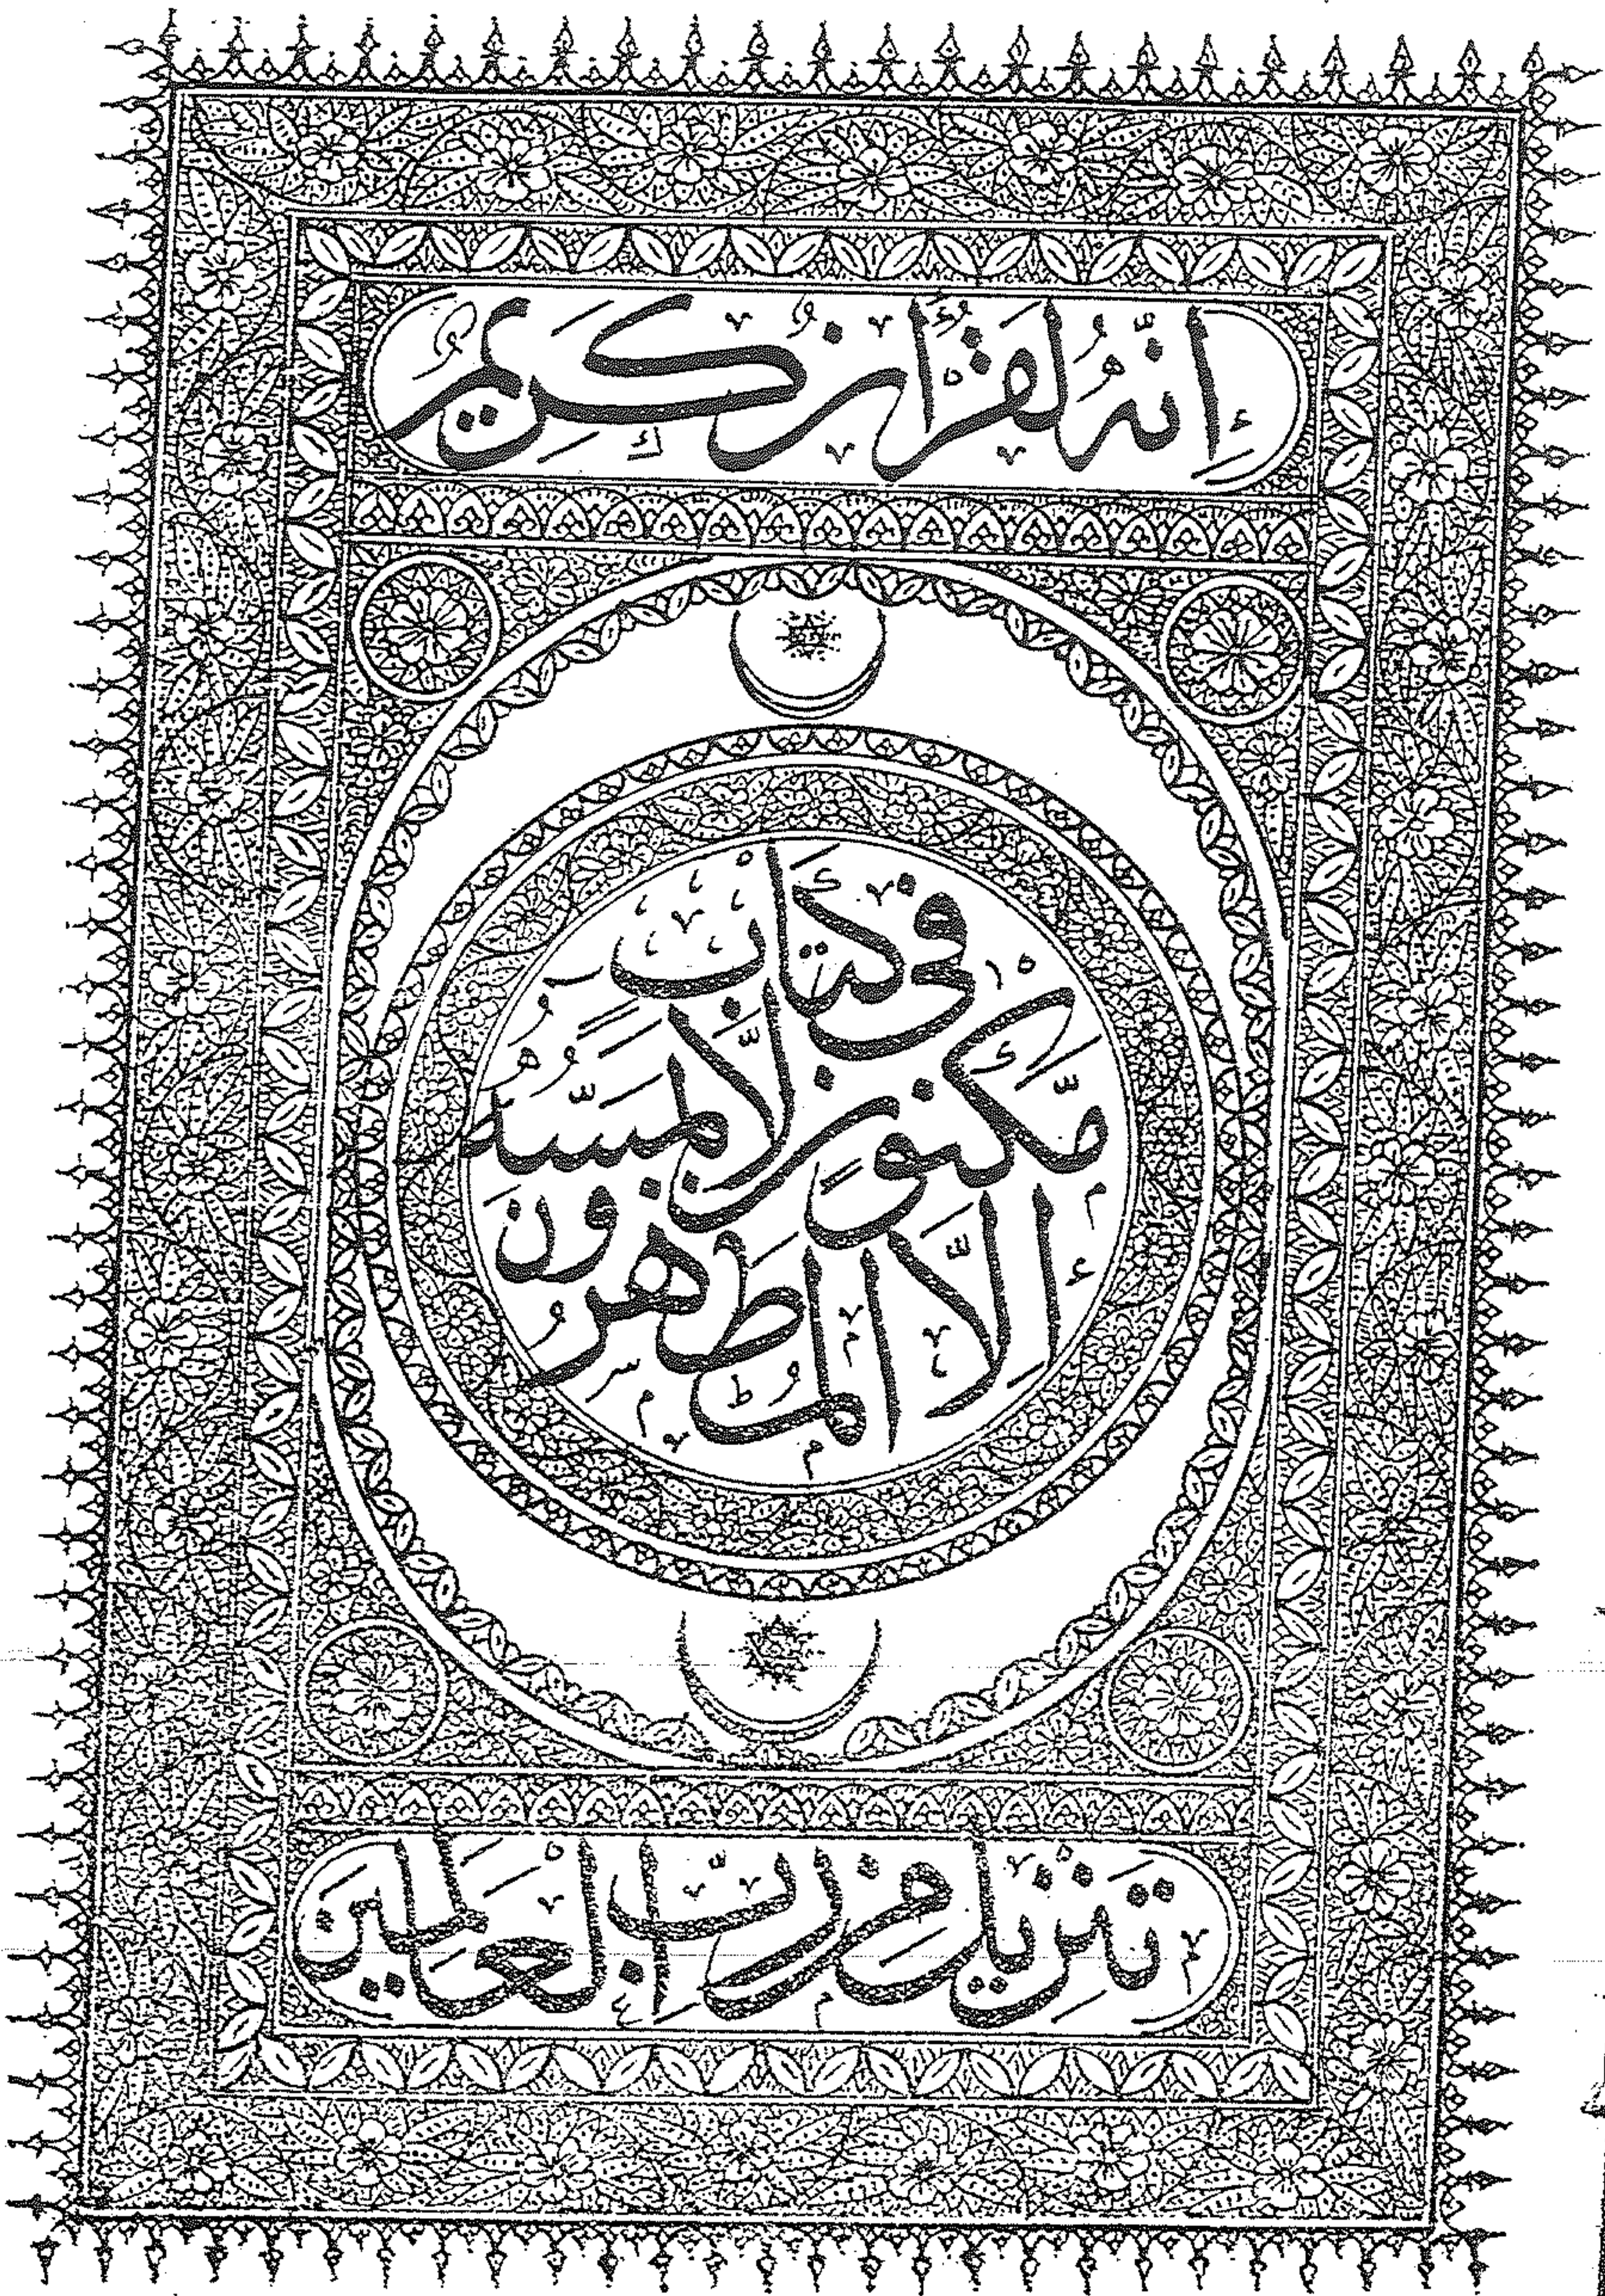 إِنَّهُ لَقُرْآنٌ كَرِيمٌ
فِي كِتَابٍ
مَّكْنُونٍ لَّا يَمَسُّهُ
إِلَّا الْمُطَهَّرُونَ
تَنزِيلٌ مِّن رَّبِّ الْعَالَمِينَ